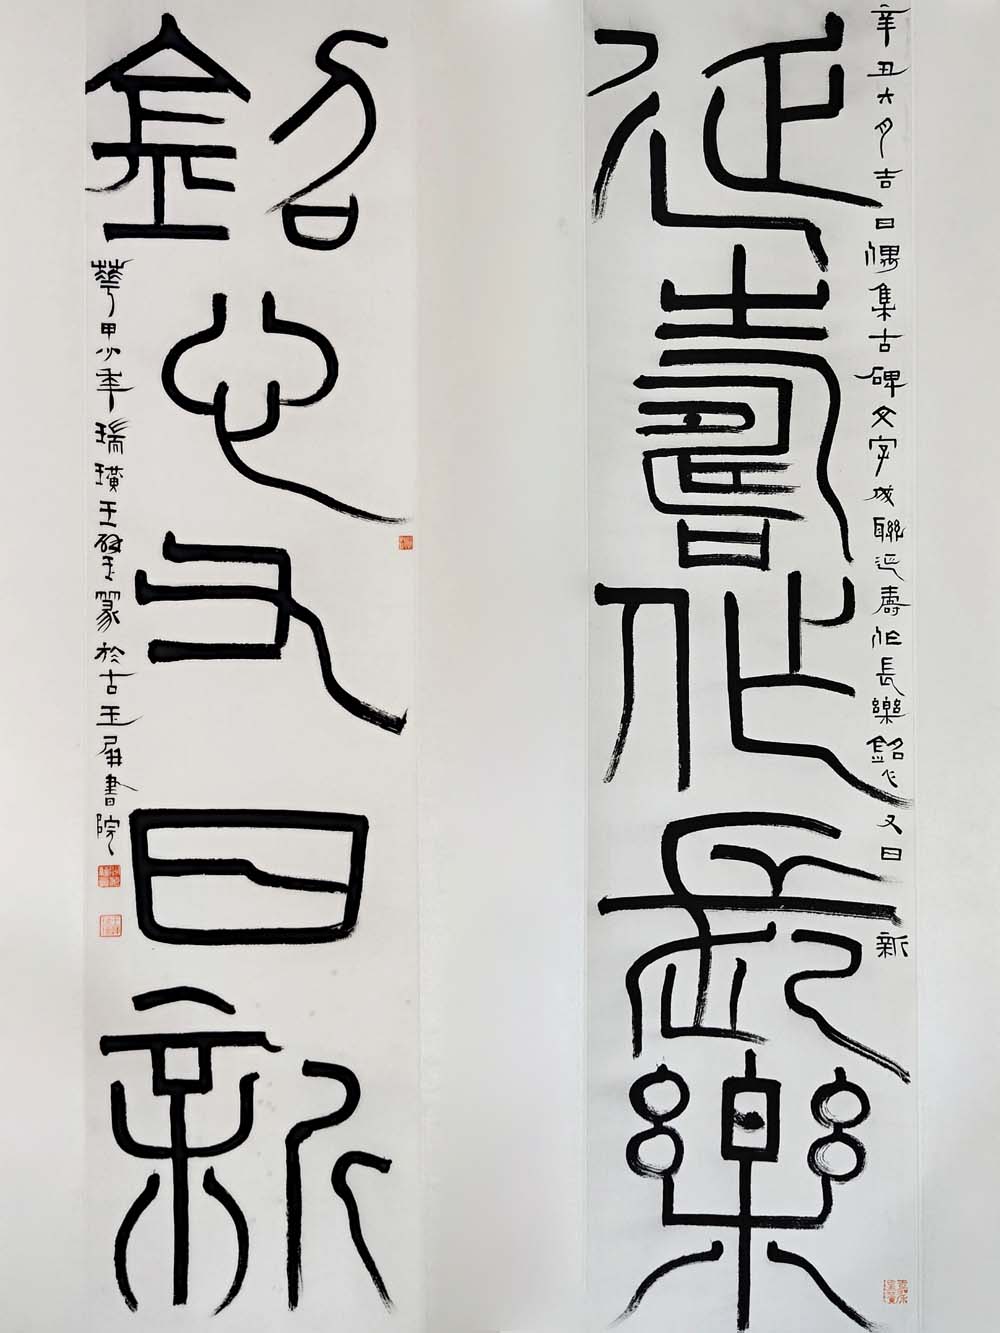 延壽作長樂
辛丑六月吉日偶集古碑文字成聯延壽作長樂銘心又日新
銘心又日新
華甲少年瑞璜王篆於古玉屏書院